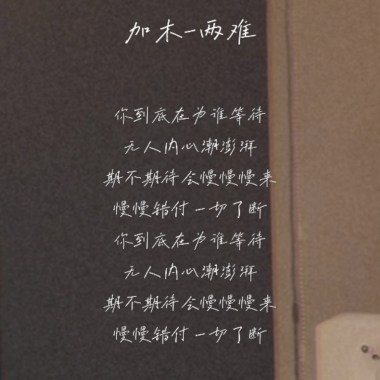 加木一两难
你到底在为谁等待
无人内心潮澎湃
期不期待会慢慢慢来
慢慢错付一切了断
你到底在为谁等待
无人内心潮澎湃
期不期待会慢慢慢来
慢慢错付一切了断